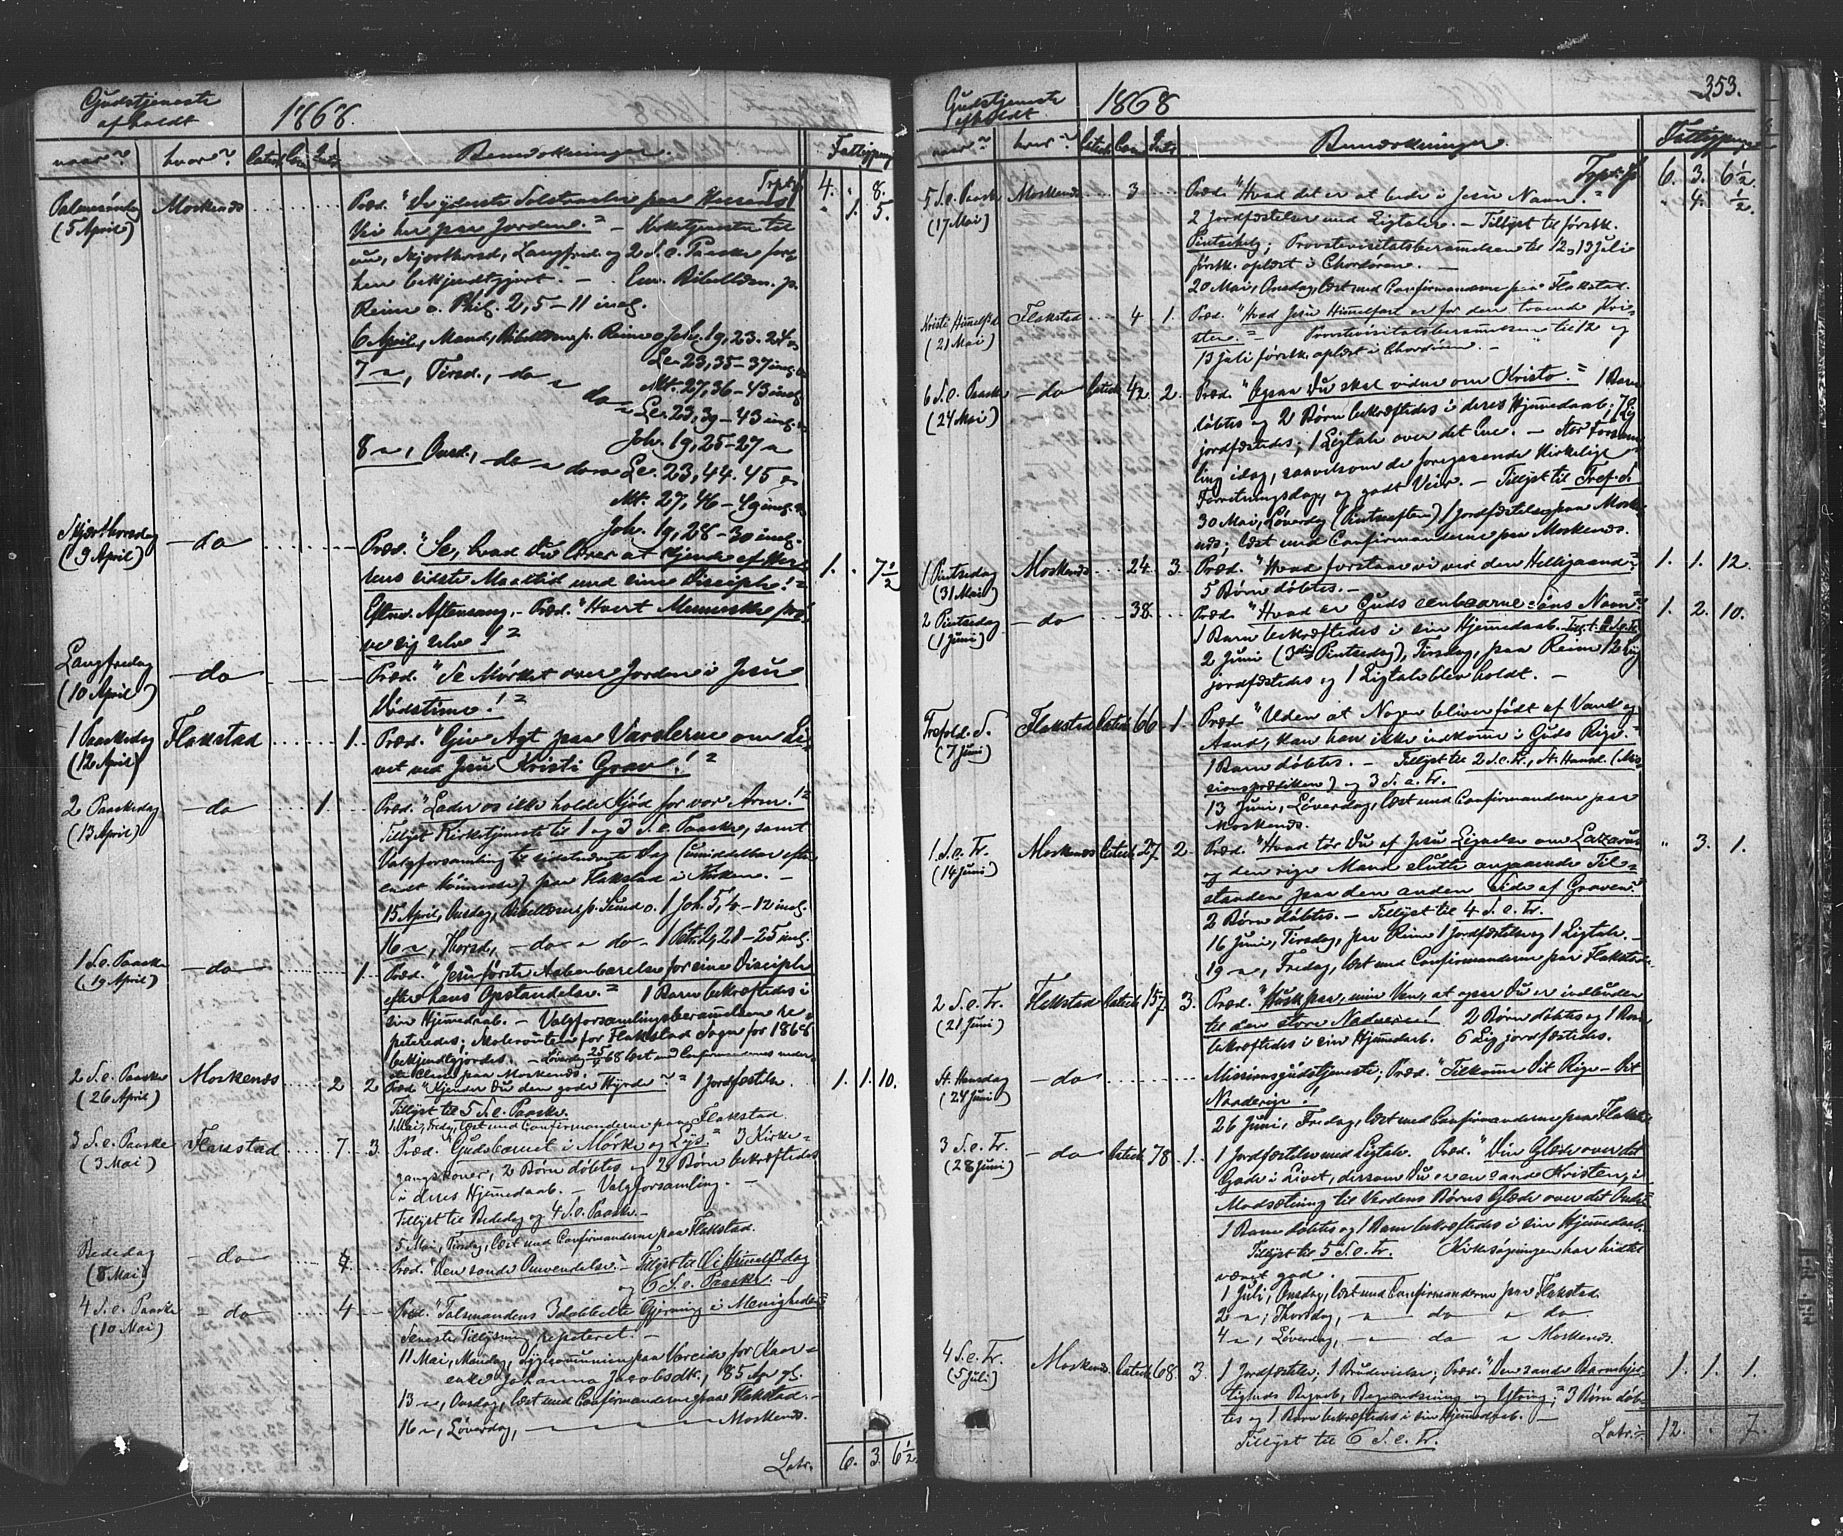 Gudstjeneste
afholdt
1868.
naar? hvor? Catech. Com. Intr. Bemærkninger. Fattigpung
Palmesøndag Moskenes Trpt. 4. . 8.
(5 April) Præd. "De yderste Solstraaler paa Herrens " 1. 5.
Vei her paa Jorden." – Kirketjeneste til
Skjærthorsd, Langfred. og 2 S. e. Paaske
bekjendtgjort. – Em. Bibellæsn. p.
Reine o. Phil. 2, 5–11 incl.
6 April, Mand, Bibellæsn. p. Reine o. Joh. 19, 23. 24 
Lc. 23, 35–37 incl.
7 Tirsd., do Mt. 27, 36–43 incl.
do Lc. 23, 39–43 incl.
Joh. 19, 25–27
8 Onsd., do Lc. 23, 44. 45
Mt. 27, 46–49 incl.
Joh. 19, 28–30 incl.
Skjærthorsdag
(9 April) – do Præd. "Se, hvad Du lærer at kjende af Her- 1. . 7 1/2
rens sidste Maaltid med sine Disciple!"
Efterm. Aftensang. – Præd. "Hvert Menneske prø-
ve sig selv!"
Langfredag
(10 April) – do Præd. "Se Mørket over Jorden i Jesu
Dødstime!"
1 Paaskedag Flakstad 1. Præd. "Giv Agt paa Varslerne om Li-
(12 April) vet ved Jesu Kristi Grav!"
2 Paaskedag – do 1. Præd. "Lader os ikke holde Kjød for vor Arm!"
(13 April) Tillyst Kirketjeneste til 1 og 3 S. e. Paaske, samt
Valgforsamling til sidstnævnte Dag (umiddelbar efter
endt Messe) paa Flakstad i Kirken. –
15 April, Onsdag, Bibellæsn. p. Sund o. 1 Joh. 5, 4–12 incl.
16 , Thorsd, – do do 1 Petr. 2, 21–25 incl.
1 S. e. Paaske – do 1. Præd. "Jesu første Aabenbarelse for sine Disciple
(19 April) efter hans Opstandelse." 1 Barn bekræftedes i
sin Hjemmedaab. – Valgforsamlingsberammelsen re-
peteredes; for Flakstad Sogn for 1868
bekjendtgjordes. – Løverdag 25/4 68 læst med Confirmanderne
paa Moskenes.
2 S. e. Paaske Moskenes 2 2 Præd. "Kjender Du den gode Hyrde?" 1 Jordfæstelse. 1. 1. 10.
(26 April) Tillyst til 5 S. e. Paaske.
1 Mai, Fredag, læst med Confirmanderne paa Flakstad.
3 S. e. Paaske Flakstad 7 3. Præd. "Gudsbarnet i Mørke og Lys" 3 Kirke-
(3 Mai) gangskoner, 2 Børn døbtes og 2 Børn bekræftedes
i deres Hjemmedaab. – Valgforsamling. –
Tillyst til Bededag og 4 S. e. Paaske. –
5 Mai, Tirsdag, læst med Confirmanderne paa Flakstad.
Bededag – do 4. Præd. "Den sande Omvendelse." – Tillyst til Kr. Himmelf.dag
(8 Mai) og 6 S. e. Paaske. –
4 S. e. Paaske " do 4 Præd. "Talsmandens 3dobbelte Gjerning i Menigheden"
(10 Mai) Seneste Tillysning repeteret. –
11 Mai, Mandag, Sygecommunion paa Vareide for Kaar-
enke Johanna Jacobsdtr., 85 Aar gl.
13 , Onsdag, læst med Confirmanderne paa Flakstad. –
16 , Løverdag, – – – Moskenes.
Latr. 6. 3. 6 1/2
353.
Gudstjeneste
afholdt
1868
naar? hvor? Catech. Com. Intr. Bemærkninger Fattigpung
5 S. e. Paaske Moskenes 3 Præd. "Hvad det er at bede i Jesu Navn." Trpt. 6. 3. 6 1/2
(17 Mai) 2 Jordfæstelser med Ligtaler. – Tillyst til førstk. " 4. 1/2
Pintsehelg; Provstevisitatsberammelsen til 12 og 13 Juli
førstk. oplæst i Chordøren. –
20 Mai, Onsdag, læst med Confirmanderne paa Flakstad.
Kristi Himmelf.d. Flakstad 4 1. Præd. "Hvad Jesu Himmelfart er for den troende Kri-
(21 Mai) sten." Provstevisitatsberammelsen til 12 og
13 Juli førstk. oplæst i Chordøren. –
6 S. e. Paaske – do Catech. 42 2. Præd. "Ogsaa Du skal vidne om Kristo." 1 Barn
(24 Mai) døbtes og 2 Børn bekræftedes i deres Hjemmedaab; 7 Lig
jordfæstedes; 1 Ligtale over det ene. – Stor Forsam-
ling idag, saavelsom de foregaaende Kirkelige
Forretningsdage, og godt Veir. – Tillyst til Tref. S.
30 Mai, Løverdag (Pintseaften) 1 Jordfæstelse paa Moske-
nes; læst med Confirmanderne paa Moskenes.
1 Pintsedag Moskenes 24. 3. Præd. "Hvad forstaar vi ved den Helligaand" 1. 1. 12.
(31 Mai) 5 Børn døbtes. –
2 Pintsedag – do 38. Præd. "Hvad er Guds eenbaarne Søns Navn" 1. 2. 10.
(1 Juni) 1 Barn bekræftedes i sin Hjemmedaab.
2 Juni (3die Pintsedag), Tirsdag, paa Reine 12 Lig
jordfæstedes og 1 Ligtale blev holdt. –
Trefold. S. Flakstad Catech. 66 1. Præd. "Uden at Nogen bliver født af Vand og
(7 Juni) Aand, kan han ikke indkomme i Guds Rige."
1 Barn døbtes. – Tillyst til 2 S. e. Tr., St. Hansd. (Mis-
sionsprædiken) og 3 S. e. Tr.
13 Juni, Løverdag, læst med Confirmanderne paa
Moskenes.
1 S. e. Tr. Moskenes Catech. 27. 2. Præd. "Hvad tør Du af Jesu Lignelse om Lazarus " 3. 1.
(14 Juni) og den rige Mand slutte angaaende Til-
standen paa den anden Side af Graven."
2 Børn døbtes. – Tillyst til 4 S. e. Tr.
16 Juni, Tirsdag, paa Reine 1 Jordfæstelse og 1 Ligtale. –
19 , Fredag, læst med Confirmanderne paa Flakstad.
2 S. e. Tr. Flakstad Catech. 157. 3. Præd. "Husk paa, min Ven, at ogsaa Du er indbuden
(21 Juni) til den store Nadvere!" 2 Børn døbtes og 1 Barn
bekræftedes i sin Hjemmedaab. 6 Lig jordfæstedes.
St. Hansdag – do Missionsgudstjeneste; Præd. "Tilkomme Dit Rige – Dit
(24 Juni) Naaderige!"
26 Juni, Fredag, læst med Confirmanderne paa Flakstad
3 S. e. Tr. – do Catech. 78. 1. 1 Jordfæstelse med Ligtale. Præd. "Din Glæde over det
(28 Juni) Gode i Livet, dersom Du er en sand Kristen, i
Modsætning til Verdens Børns Glæde over det Onde"
1 Barn døbtes og 1 Barn bekræftedes i sin Hjemmedaab.
Tillyst til 5 S. e. Tr. Kirkesøgningen har hidtil
været god.
1 Juli, Onsdag, læst med Confirmanderne paa Flakstad.
2 , Thorsdag, – do do
4 , Løverdag, – do Moskenes.
4 S. e. Tr. Moskenes Catech. 68. 3. 1 Jordfæstelse. 1 Brudevielse; Præd. "Den sande Barmhjer- 1. 1. 1.
(5 Juli) tigheds Begreb, Begrundning og Øvning;" 3 Børn døb-
tes og 1 Barn bekræftedes i sin Hjemmedaab. –
Tillyst til 6 S. e. Tr. Latr. 12. . 7.